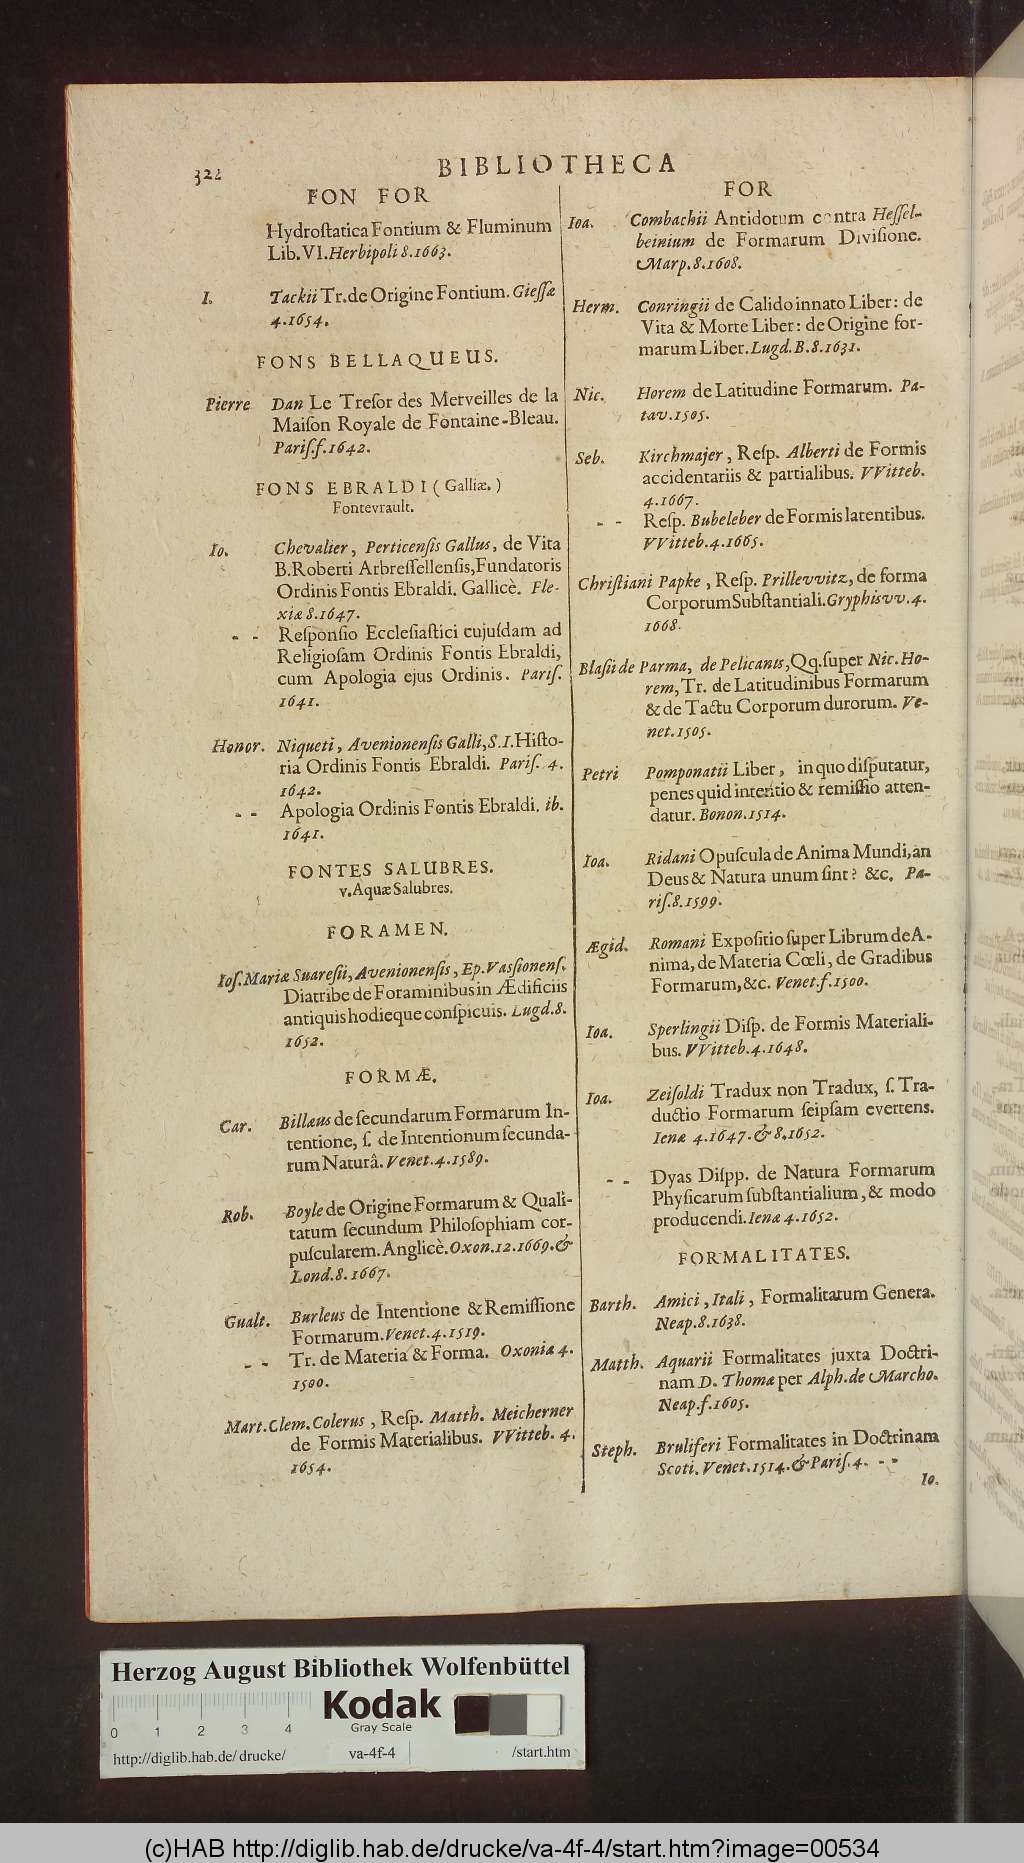 322
BIBLIOTHECA
FON FOR
Hydroſtatica Fontium & Fluminum
Lib. VI. Herbipoli 8. 1663.
I. Tackii Tr. de Origine Fontium. Gieſſæ
4. 1654.
FONS BELLAQUEUS.
Pierre Dan Le Treſor des Merveilles de la
Maiſon Royale de Fontaine-Bleau.
Pariſ. f. 1642.
FONS EBRALDI (Galliæ.)
Fontevrault.
Io. Chevalier, Perticenſis Gallus, de Vita
B. Roberti Arbreſſellensis, Fundatoris
Ordinis Fontis Ebraldi. Gallicè. Fle-
xiæ 8. 1647.
- - Reſponſio Eccleſiaſtici cujuſdam ad
Religioſam Ordinis Fontis Ebraldi,
cum Apologia ejus Ordinis. Pariſ.
1641.
Honor. Niqueti, Avenionenſis Galli, S. I. Hiſto-
ria Ordinis Fontis Ebraldi. Pariſ. 4.
1642.
- - Apologia Ordinis Fontis Ebraldi. ib.
1641.
FONTES SALUBRES.
v. Aquæ Salubres.
FORAMEN.
Ioſ. Mariæ Suareſii, Avenionenſis, Ep. Vaſionenſ.
Diatribe de Foraminibus in Ædificiis
antiquis hodieque conſpicuis. Lugd. 8.
1652.
FORMÆ.
Car. Billæus de ſecundarum Formarum In-
tentione, ſ. de Intentionum ſecunda-
rum Naturâ. Venet. 4. 1589.
Rob. Boyle de Origine Formarum & Quali-
tatum ſecundum Philoſophiam cor-
puſcularem. Anglicè. Oxon. 12. 1669. &
Lond. 8. 1667.
Gualt. Burleus de Intentione & Remiſſione
Formarum. Venet. 4. 1519.
- - Tr. de Materia & Forma. Oxoniæ 4.
1500.
Mart. Clem. Colerus, Reſp. Matth. Meicherner
de Formis Materialibus. VVitteb. 4.
1654.
FOR
Ioa. Combachii Antidotum contra Heſſel-
beinium de Formarum Diviſione.
Marp. 8. 1608.
Herm. Conringii de Calido innato Liber: de
Vita & Morte Liber: de Origine for-
marum Liber. Lugd. B. 8. 1631.
Nic. Horem de Latitudine Formarum. Pa-
tav. 1505.
Seb. Kirchmajer, Reſp. Alberti de Formis
accidentariis & partialibus. VVitteb.
4. 1667.
- - Reſp. Bubeleber de Formis latentibus.
VVitteb. 4. 1665.
Chriſtiani Papke, Reſp. Prillevvitz, de forma
Corporum Subſtantiali. Gryphisvv. 4.
1668.
Blaſii de Parma, de Pelicanis, Qq. ſuper Nic. Ho-
rem, Tr. de Latitudinibus Formarum
& de Tactu Corporum durorum. Ve-
net. 1505.
Petri Pomponatii Liber, in quo diſputatur,
penes quid intentio & remiſſio atten-
datur. Bonon. 1514.
Ioa. Ridani Opuſcula de Anima Mundi, an
Deus & Natura unum ſint? &c. Pa-
riſ. 8. 1599.
Ægid. Romani Expoſitio ſuper Librum de A-
nima, de Materia Cœli, de Gradibus
Formarum, &c. Venet. f. 1500.
Ioa. Sperlingii Diſp. de Formis Materiali-
bus. VVitteb. 4. 1648.
Ioa. Zeiſoldi Tradux non Tradux, ſ. Tra-
ductio Formarum ſeipſam evertens.
Ienæ 4. 1647. & 8. 1652.
- - Dyas Diſpp. de Natura Formarum
Phyſicarum ſubſtantialium, & modo
producendi. Ienæ 4. 1652.
FORMALITATES.
Barth. Amici, Itali, Formalitatum Genera.
Neap. 8. 1638.
Matth. Aquarii Formalitates juxta Doctri-
nam D. Thomæ per Alph. de Marcho.
Neap. f. 1605.
Steph. Bruliferi Formalitates in Doctrinam
Scoti. Venet. 1514. & Pariſ. 4. - -
Io.
Herzog August Bibliothek Wolfenbüttel
Kodak
Gray Scale
0 1 2 3 4
http://diglib.hab.de/drucke/ va-4f-4 /start.htm
(c)HAB http://diglib.hab.de/drucke/va-4f-4/start.htm?image=00534